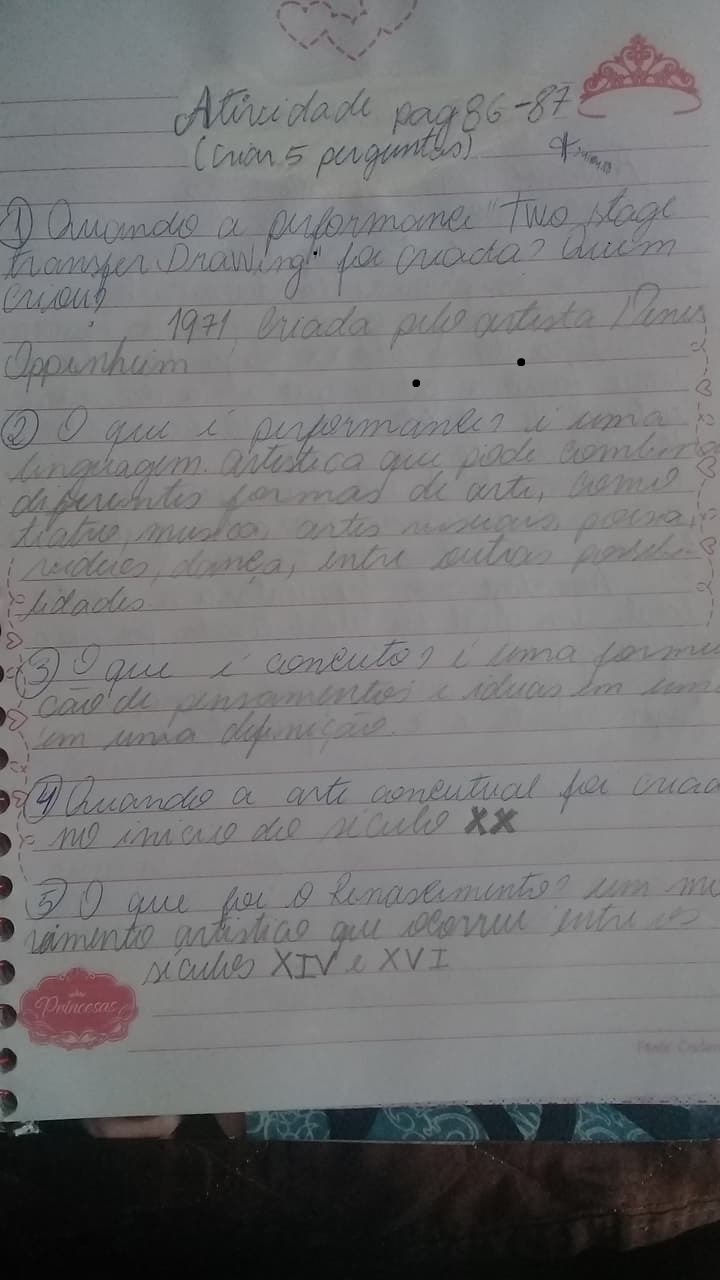 Atividade pag 86-87
(criar 5 perguntas)
① Quando a performance "Two stage
transfer Drawing" foi criada? Quem
criou?
1971, criada pelo artista Denis
Oppenheim
② O que é performance? é uma
linguagem artistica que pode combina
diferentes formas de arte, como
teatro, musica, artes visuais, poesia,
videos, dança, entre outras possibi
lidades
③ O que é conceito? é uma formu
cão de pensamentos e ideias em uma
em uma definição.
④ Quando a arte conceitual foi criad
no inicio do século XX
⑤ O que foi o Renascimento? um mo
vimento artistico que ocorreu entre os
séculos XIV e XVI
Princesas